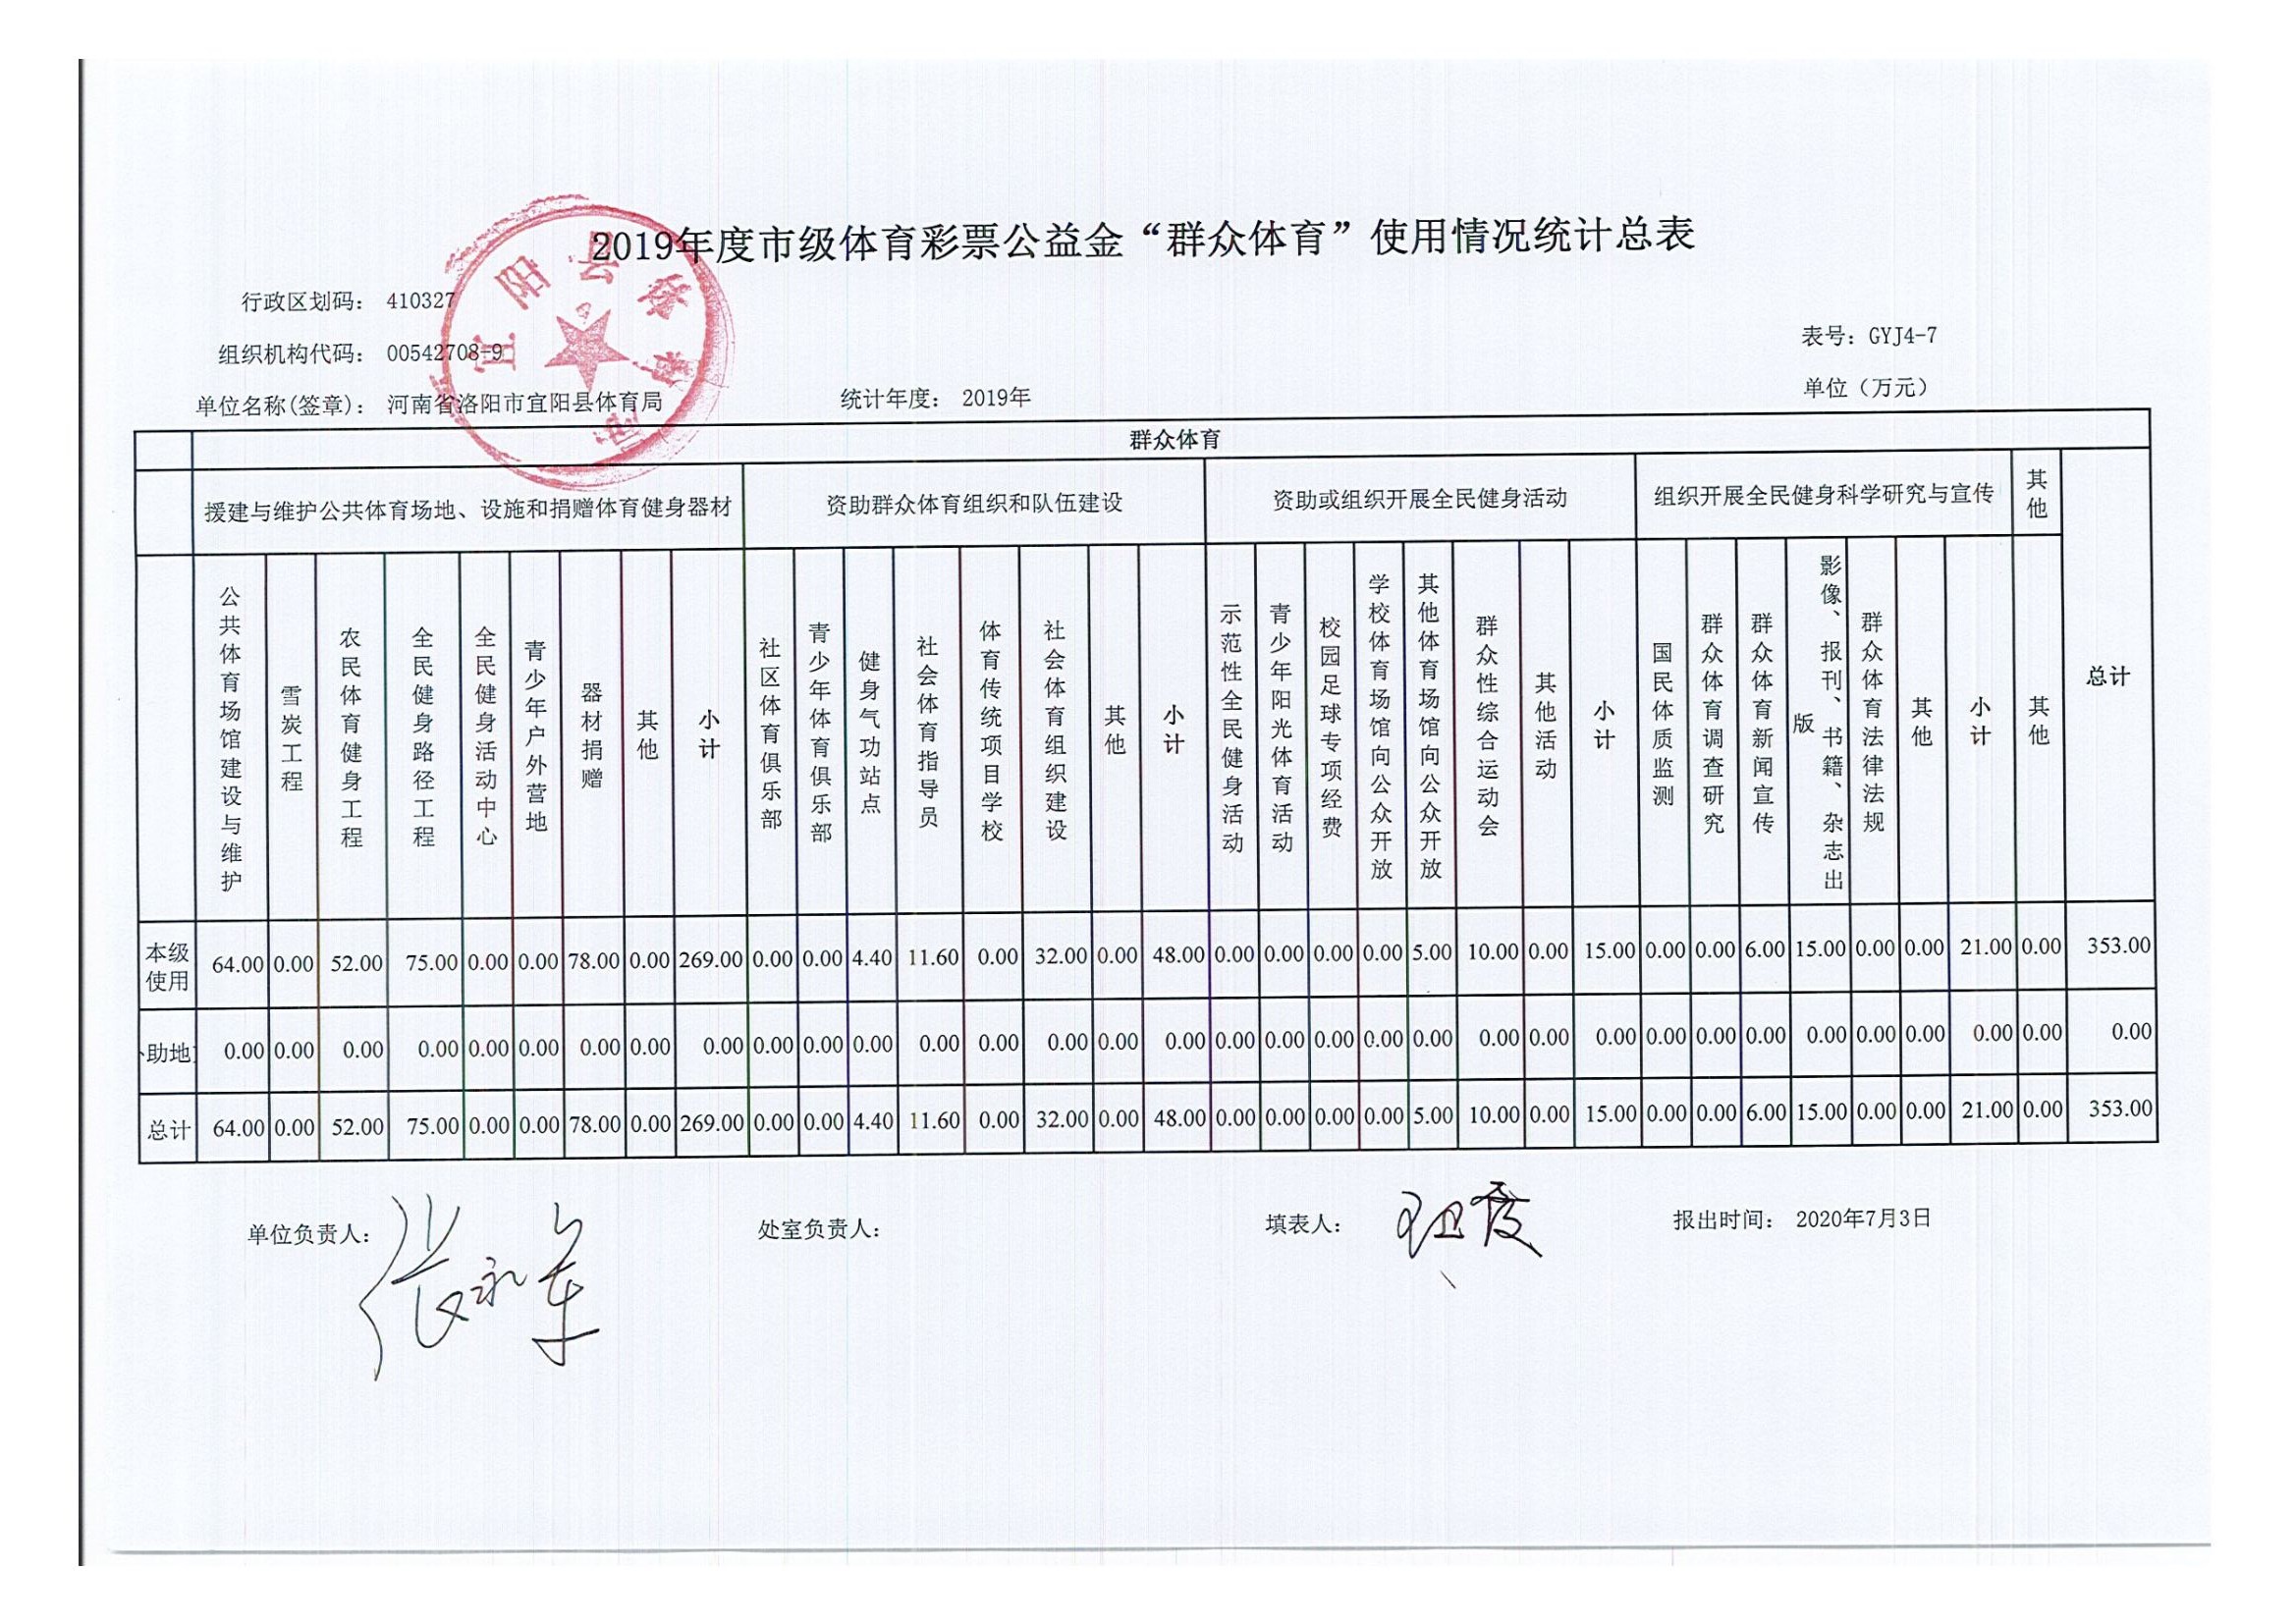 2019年度市级体育彩票公益金“群众体育”使用情况统计总表
行政区划码： 410327
组织机构代码： 00542708-9
表号：GYJ4-7
单位名称(签章)： 河南省洛阳市宜阳县体育局 统计年度： 2019年 单位（万元）
群众体育
援建与维护公共体育场地、设施和捐赠体育健身器材 资助群众体育组织和队伍建设 资助或组织开展全民健身活动 组织开展全民健身科学研究与宣传 其他 总计
公共体育场馆建设与维护 雪炭工程 农民体育健身工程 全民健身路径工程 全民健身活动中心 青少年户外营地 器材捐赠 其他 小计 社区体育俱乐部 青少年体育俱乐部 健身气功站点 社会体育指导员 体育传统项目学校 社会体育组织建设 其他 小计 示范性全民健身活动 青少年阳光体育活动 校园足球专项经费 学校体育场馆向公众开放 其他体育场馆向公众开放 群众性综合运动会 其他活动 小计 国民体质监测 群众体育调查研究 群众体育新闻宣传 影像、报刊、书籍、杂志出版 群众体育法律法规 其他 小计 其他
本级使用 64.00 0.00 52.00 75.00 0.00 0.00 78.00 0.00 269.00 0.00 0.00 4.40 11.60 0.00 32.00 0.00 48.00 0.00 0.00 0.00 0.00 5.00 10.00 0.00 15.00 0.00 0.00 6.00 15.00 0.00 0.00 21.00 0.00 353.00
助地 0.00 0.00 0.00 0.00 0.00 0.00 0.00 0.00 0.00 0.00 0.00 0.00 0.00 0.00 0.00 0.00 0.00 0.00 0.00 0.00 0.00 0.00 0.00 0.00 0.00 0.00 0.00 0.00 0.00 0.00 0.00 0.00 0.00 0.00
总计 64.00 0.00 52.00 75.00 0.00 0.00 78.00 0.00 269.00 0.00 0.00 4.40 11.60 0.00 32.00 0.00 48.00 0.00 0.00 0.00 0.00 5.00 10.00 0.00 15.00 0.00 0.00 6.00 15.00 0.00 0.00 21.00 0.00 353.00
单位负责人： 处室负责人： 填表人： 报出时间： 2020年7月3日